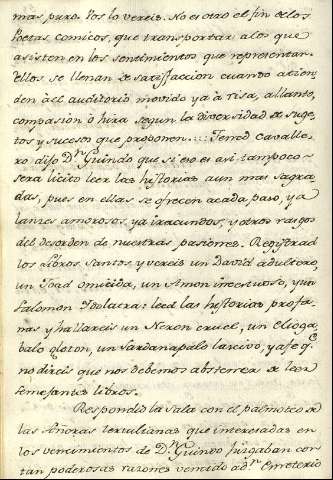 mas puro. Vos lo vereis. No es otro el fin de los
Poetas comicos, que transportar a los que
asisten en los sentimientos que representan.
Ellos se llenan de satisfaccion cuando atien-
den àel auditorio movido ya à risa, allanto,
compasión ò hira segun la diversidad de suge-
tos y sucesos que proponen ... Tened cavalle-
ro dijo Dn. Guindo que si eso es asi tampoco
será licito leer las historias aun mas sagra-
das, pues en ellas se ofrecen acada paso, ya
lances amorosos, ya iracundos, y otros rasgos
del desorden de nuestras pasiones. Registrad
los Libros Santos y vereis un David adultero,
un Joad omicida, un Amon incestuoso, y un
Salomon Idolatra: leed las historias profa-
nas y hallareis un Neron cruel, un Elioga-
balo gloton, un Sardanapalo lascivo, y afe qe
no direis que nos debemos abstener de leer
semejantes libros.
Respondió la Sala con el palmoteo de
las Señoras tertulianas que interesadas en
los vencimientos de Dn. Guindo juzgaban con
tan poderosas razones vencido a dn. Emeterio